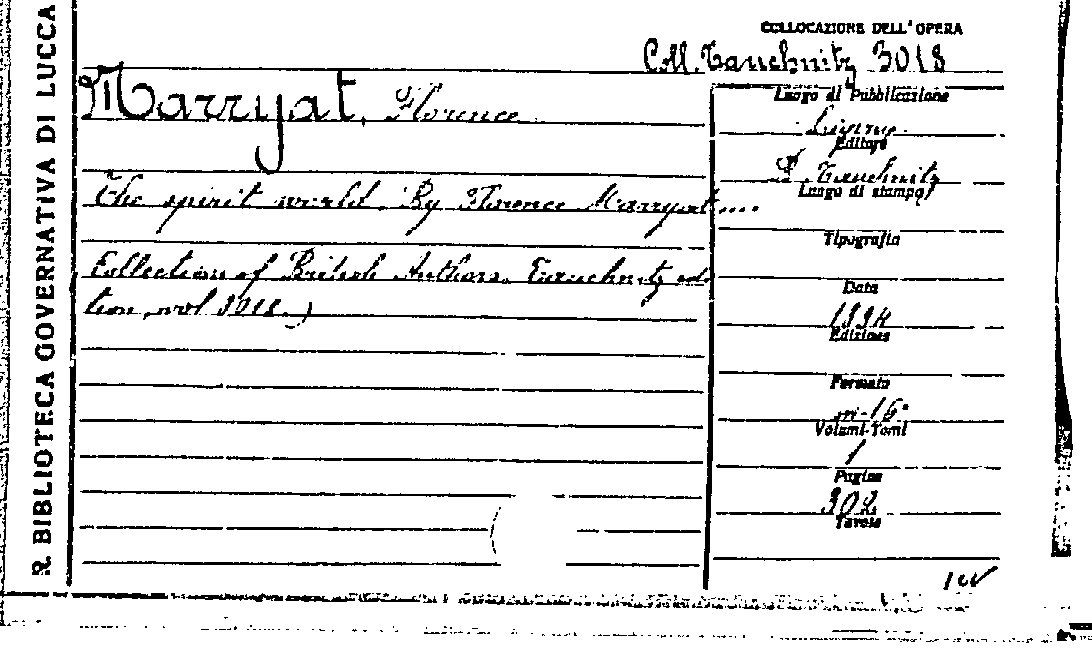 R. BIBLIOTECA GOVERNATIVA DI LUCCA
COLLOCAZIONE DELL'OPERA
Coll. Tauchnitz 3018
Marryat, Florence
The spirit world. By Florence Marryat....
Collection of British Authors. Tauchnitz edi-
tion, vol 3018.)
Luogo di Pubblicazione
Editore
B. Tauchnitz
Luogo di stampa
Tipografia
Data
1894
Edizione
Formato
in-16°
Volumi-Tomi
1
Pagine
302
Tavole